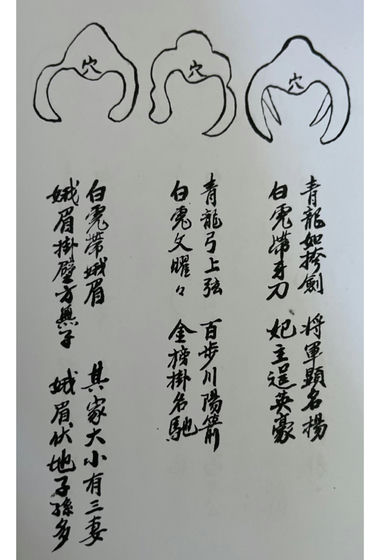 穴
青龍如捧劍 將軍顯名揚
白虎帶牙刀 妃主逞英豪
穴
青龍弓上弦 百步川陽箭
白虎文曜々 金榜掛名馳
穴
白虎帶娥眉 其家大小有三妻
娥眉掛壁方無子 娥眉伏地子孫多